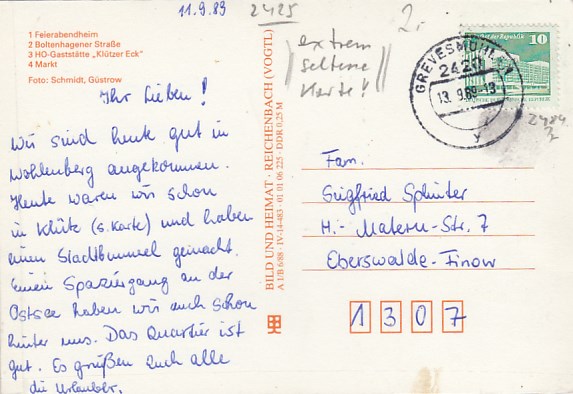 11.9.89
2425
2.-
1 Feierabendheim
2 Boltenhagener Straße
3 HO-Gaststätte „Klützer Eck"
4 Markt
Foto: Schmidt, Güstrow
extrem
seltene
Karte!
Ihr Lieben!
Wir sind heute gut in
Wohlenberg angekommen.
Heute waren wir schon
in Klütz (s. Karte) und haben
einen Stadtbummel gemacht.
Einen Spaziergang an der
Ostsee haben wir auch schon
hinter uns. Das Quartier ist
gut. Es grüßen Euch alle
die Urlauber.
BILD UND HEIMAT · REICHENBACH (VOGTL)
A 1/B 6/88 · IV-14-483 · 01 01 06 225 · DDR 0,25 M
10
GREVESMÜHLEN
2420
13. 9.89-13
y
2484
Fam.
Siegfried Splinter
H.- Matern-Str. 7
Eberswalde-Finow
1307